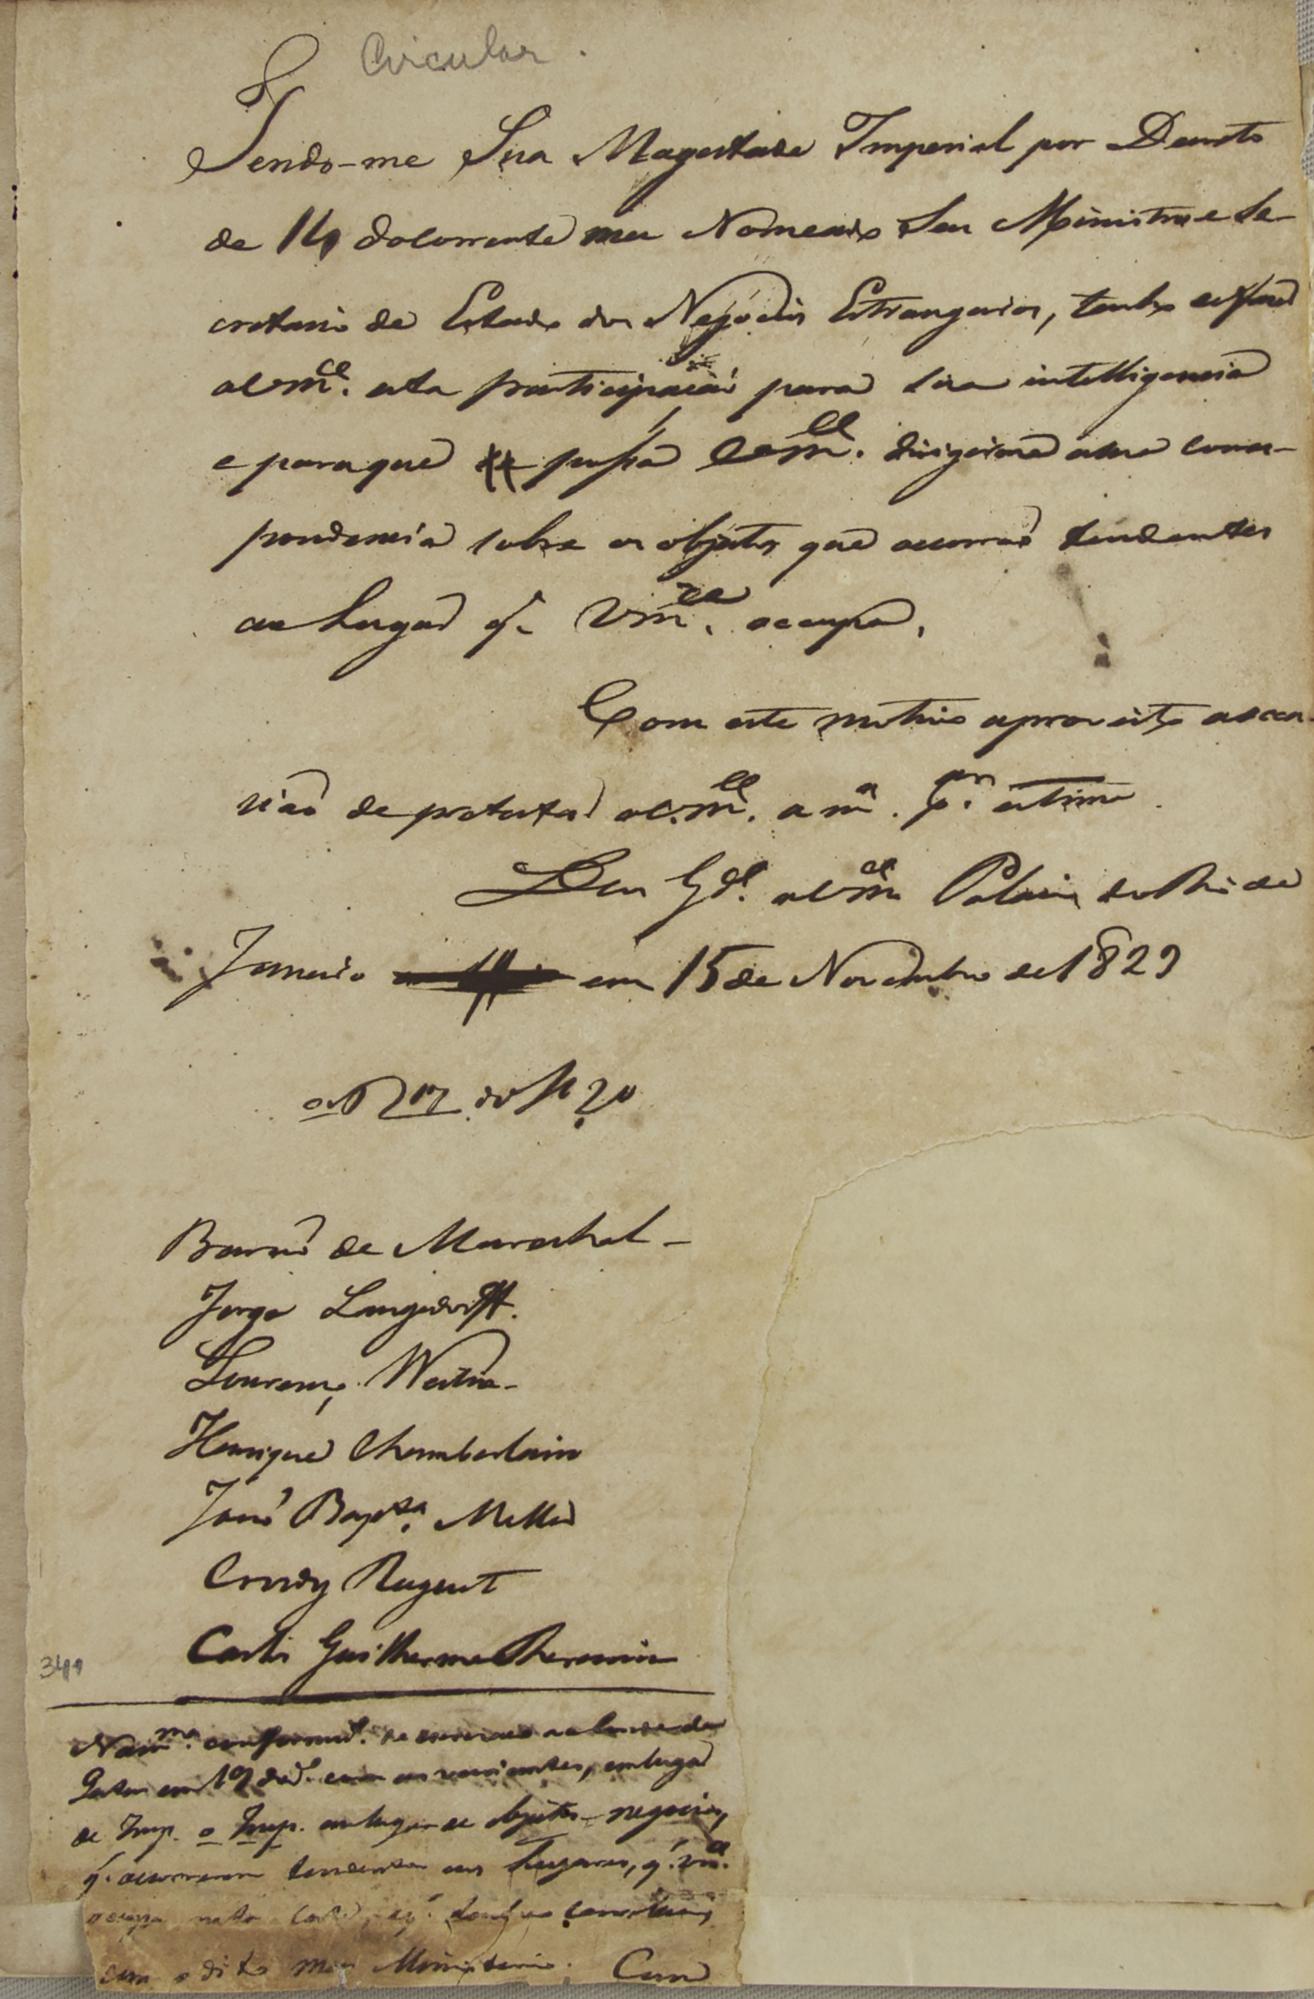 Circular.
Tendo-me Sua Magestade Imperial por Decreto
de 14 do corrente mez Nomeado Seu Ministro e Se-
cretario de Estado dos Negocios Estrangeiros, tenho
a Vm.ce esta participação para sua intelligencia
e para que possa Vm.ce dirigirme a sua corres-
pondencia sobre os objetos que occorrão tendentes
ao Lugar q. Vm.ce occupa.
Com este motivo aproveito a occa-
sião de protestar a Vm.ce a m.a estima.
Deos G.de a Vm.ce Palacio do Rio de
Janeiro em 15 de Novembro de 1829
Barão de Mareschal -
Jorge Langsdorff.
Lourenço Westin -
Henrique Chamberlain
João Bap.ta Moller
Carlos Guilherme Theremin
341
Na m.ma conformid.e se escreveo
em 19 com as variantes, em lugar
de Imp. o Imp. em lugar de objetos - negocios,
q. occorrerem tendentes aos Lugares, q. Vm.ce
occupa nesta Corte,
com o dito meu Ministerio. Com